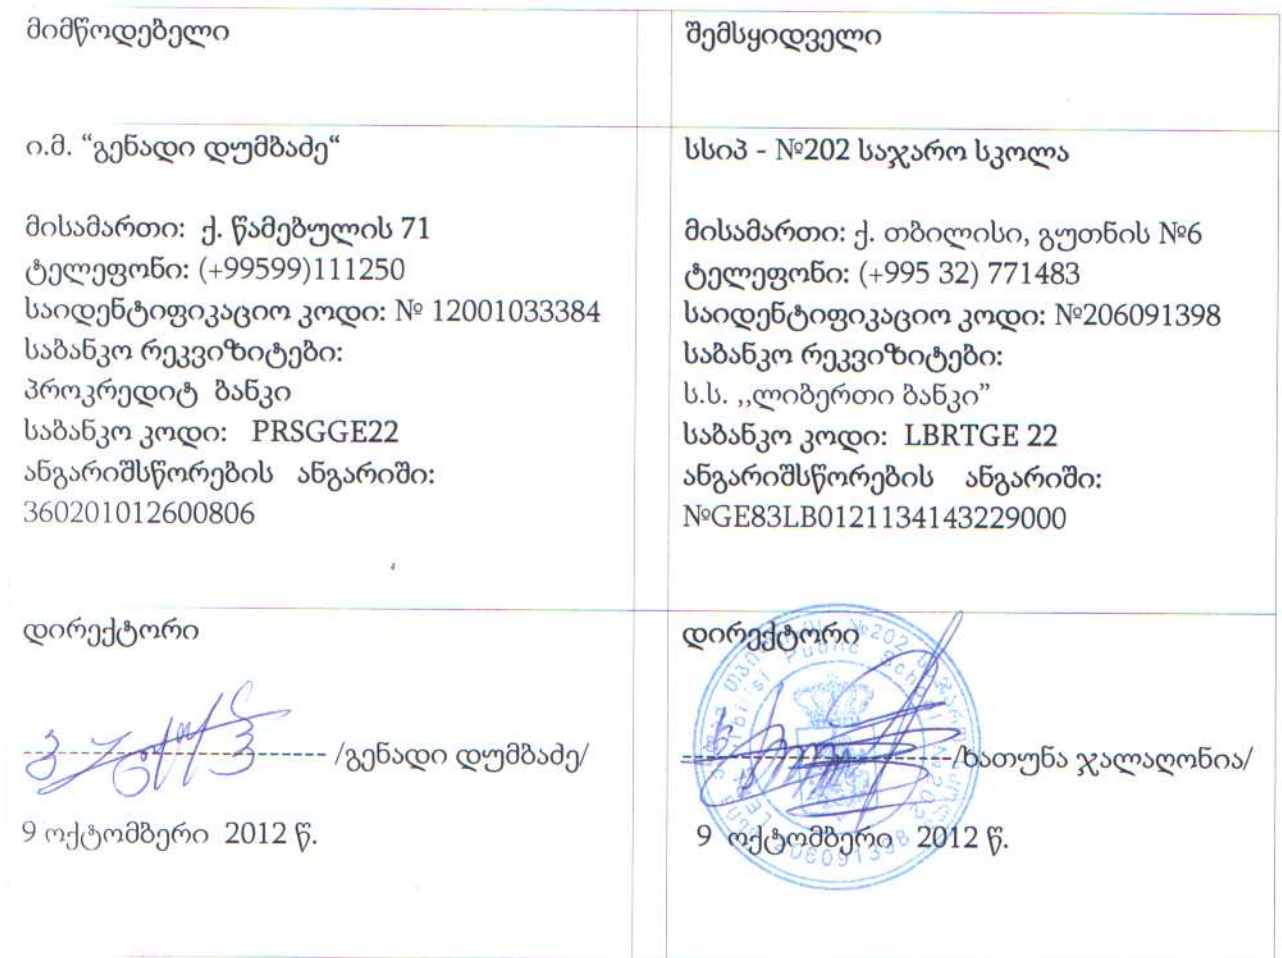 მიმწოდებელი
ი.მ. “გენადი დუმბაძე“
მისამართი: ქ. წამებულის 71
ტელეფონი: (+99599)111250
საიდენტიფიკაციო კოდი: № 12001033384
საბანკო რეკვიზიტები:
პროკრედიტ ბანკი
საბანკო კოდი: PRSGGE22
ანგარიშსწორების ანგარიში:
360201012600806
დირექტორი
/გენადი დუმბაძე/
9 ოქტომბერი 2012 წ.
შემსყიდველი
სსიპ - №202 საჯარო სკოლა
მისამართი: ქ. თბილისი, გუთნის №6
ტელეფონი: (+995 32) 771483
საიდენტიფიკაციო კოდი: №206091398
საბანკო რეკვიზიტები:
ს.ს. ,,ლიბერთი ბანკი”
საბანკო კოდი: LBRTGE 22
ანგარიშსწორების ანგარიში:
№GE83LB0121134143229000
დირექტორი
/ხათუნა ჯალაღონია/
9 ოქტომბერი 2012 წ.
№202
Tbilisi Public School №202
206091398